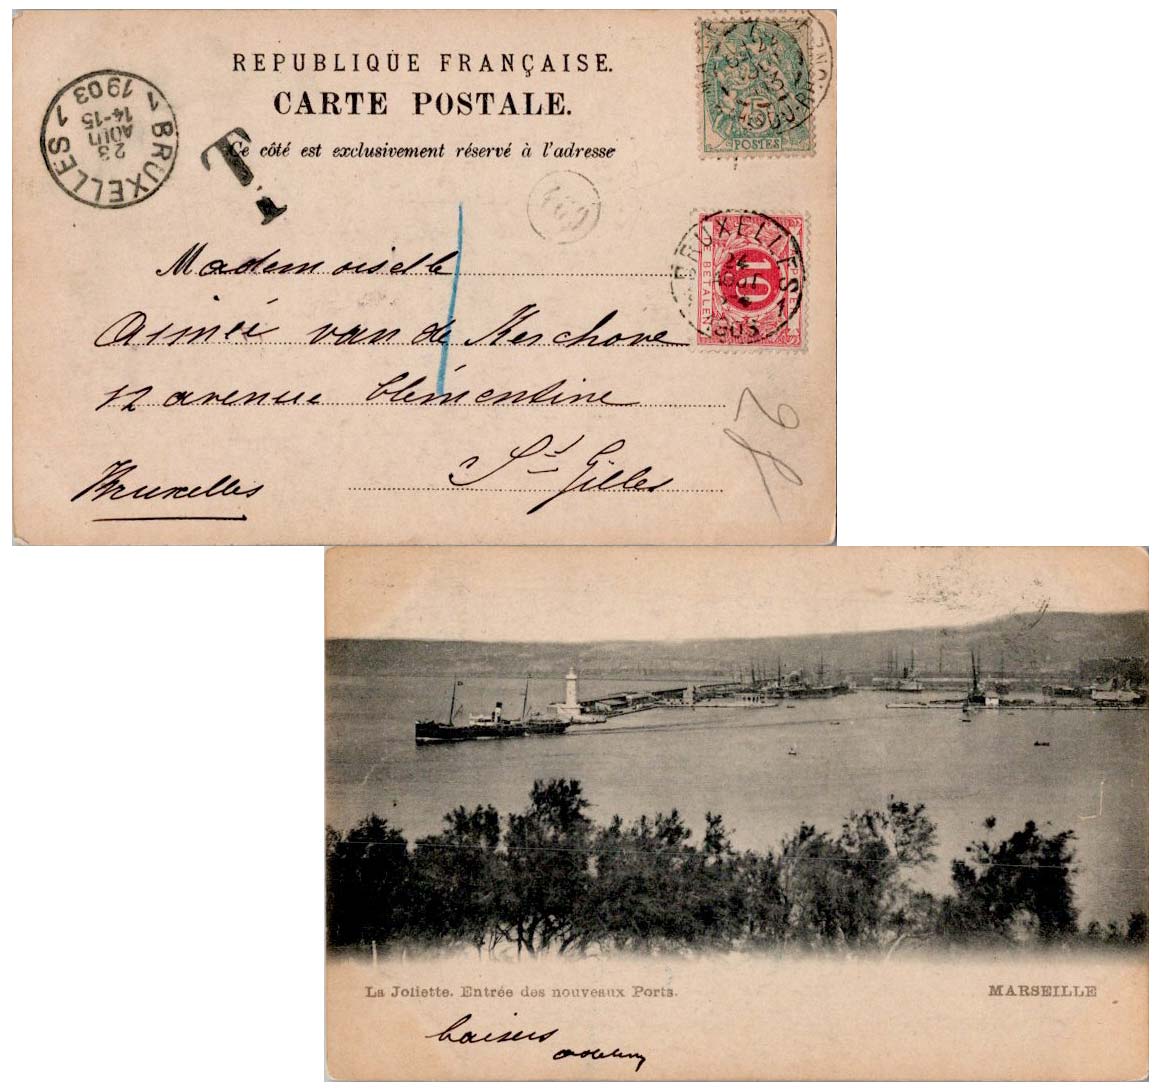 REPUBLIQUE FRANÇAISE.
CARTE POSTALE.
Ce côté est exclusivement réservé à l'adresse
BRUXELLES 1
23
AOUT
14-15
1903
T.
5
POSTES
BRUXELLES 1
24
AOUT
1903
10
BETALEN
Mademoiselle
Aimée van de Kerchove
12 avenue Clémentine
St Gilles
Bruxelles
La Joliette. Entrée des nouveaux Ports.
MARSEILLE
baisers